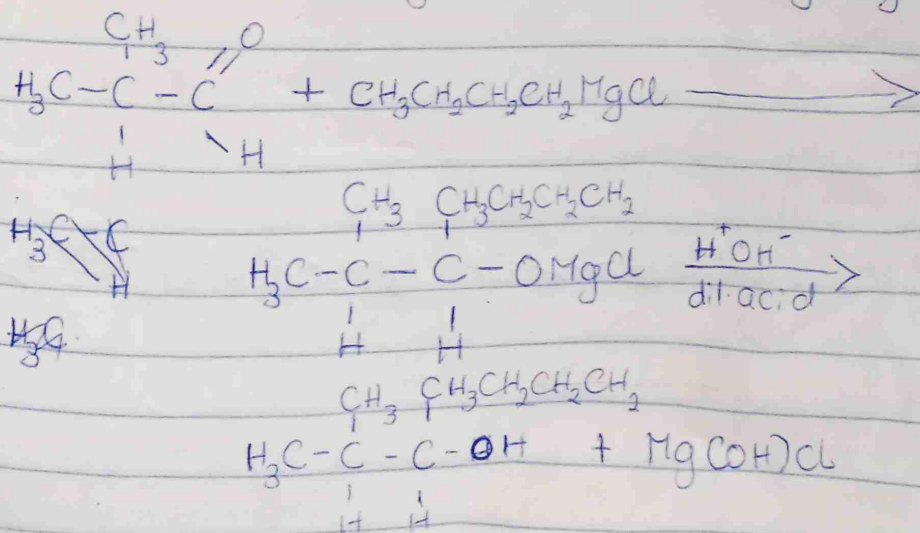 CH3 O
H3C-C-C + CH3CH2CH2CH2MgCl →
H H
CH3 CH3CH2CH2CH2
H3C-C
H3C-C-C-OMgCl H+OH- →
dil. acid
H
H H
H3C
CH3 CH3CH2CH2CH2
H3C-C-C-OH + Mg(OH)Cl
H H